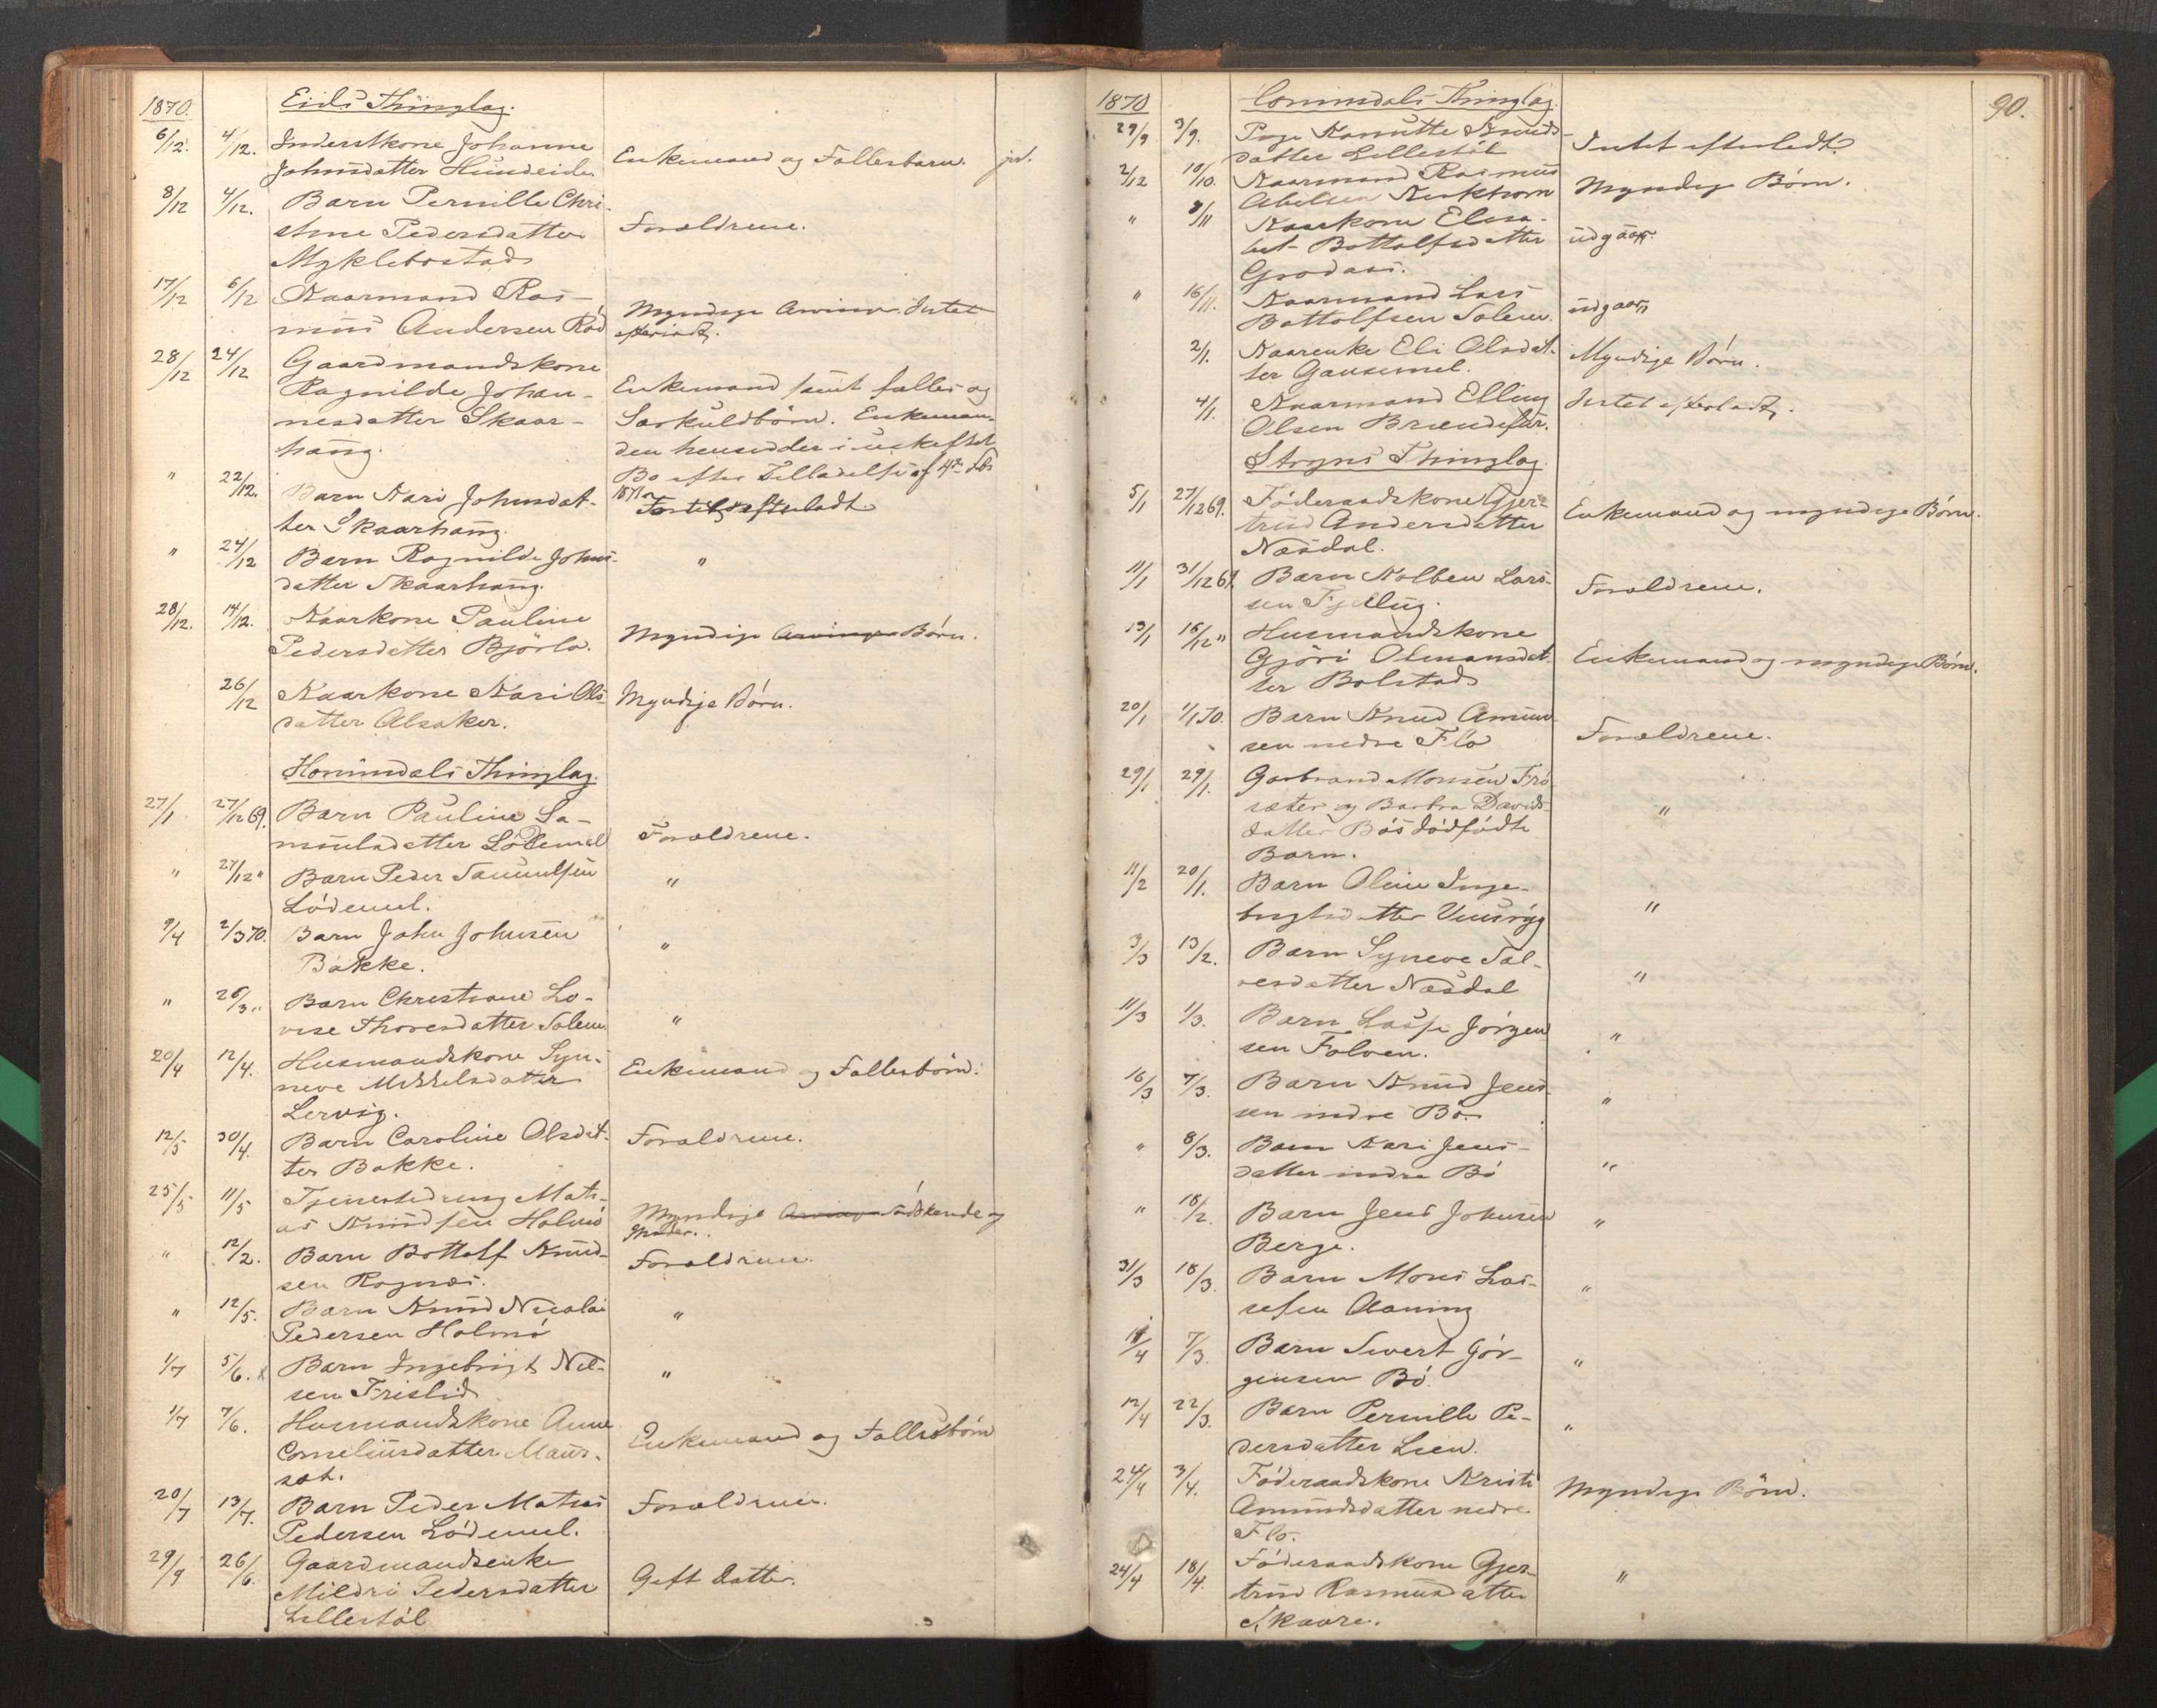 1870. Eids Thinglag.
6/12. 4/12. Inderstkone Johanne
Johnsdatter Hundeide Enkemand og Fællesbarn.
8/12 4/12. Barn Pernille Chri-
stine Pedersdatter Forældrene.
Myklebostad
17/12 6/12 Kaarmand Ras-
mus Andersen Rød Myndige Arvinger. Intet
efterladt.
28/12 24/12 Gaardmandskone
Ragnilde Johan- Enkemand samt fælles og
nesdatter Skaar- Særkuldbørn. Enkeman-
haug. den hensidder i uskiftet
Bo efter Tilladelse af
1871
" 22/12. Barn Kari Johnsdat-
ter Skaarhaug. efterladt
" 24/12 Barn Ragnilde Johns-
datter Skaarhaug. "
28/12. 14/12. Kaarkone Pauline
Pedersdatter Bjørlo. Myndige Arvinger Børn.
26/12 Kaarkone Kari Ols-
datter Alsaker. Myndige Børn.
Hornindals Thinglag.
27/1 27/12 69. Barn Pauline Sa-
muelsdatter Lødemel Forældrene.
" 27/12 " Barn Peder Samuelsen
Lødemel. "
9/4 2/3 70. Barn John Johnsen
Bakke. "
" 26/3 " Barn Christiane Lo-
vise Thoresdatter Solem "
20/4 12/4. Husmandskone Syn-
neve Mikkelsdatter Enkemand og Fællesbørn.
Lervig.
12/5 30/4. Barn Caroline Olsdat-
ter Bakke. Forældrene.
25/5 11/5 Tjenestedreng Mati-
as Knudsen Holmø Myndige Arvinger Sødskende og
Moder.
" 12/2. Barn Bottolf Knud-
sen Rognæs. Forældrene.
" 12/5. Barn Knud Nicolai
Pedersen Holmø "
1/7 5/6. Barn Ingebrigt Nil-
sen Frislid "
1/7 7/6. Husmandskone Anne
Corneliusdatter Maur- Enkemand og Fællesbørn
sæt.
20/7 13/7. Barn Peder Matias
Pedersen Lødemel. Forældrene.
29/9 26/6. Gaardmandsenke
Mildri Pedersdatter Gift Datter.
Lillestøl
90.
1870 Hornindals Thinglag.
29/9 3/9. Pige Karnutte Knuds-
datter Lillestøl Intet efterladt.
2/12 10/10. Kaarmand Rasmus
Abelsen Kirkhorn Myndige Børn.
" 8/11 Kaarkone Elisa-
bet Bottolfsdatter udgaar.
Grodaas.
" 16/11. Kaarmand Lars
Bottolfsen Solem. udgaar
2/1. Kaarenke Eli Olsdat-
ter Gausemel. Myndige Børn.
4/1. Kaarmand Elling
Olsen Brændefur. Intet efterladt.
Stryns Thinglag
5/1 27/12 69. Føderaadskone Gjer-
trud Andersdatter Enkemand og myndige Børn.
Næsdal.
11/1 31/12 69. Barn Kolben Lars-
sen Fjellug. Forældrene.
13/1 16/12 " Husmandskone
Gjøri Olmansdat- Enkemand og myndige Børn.
ter Bolstad
20/1 1/1 70. Barn Knud Amund-
sen nedre Flo Forældrene.
29/1 29/1. Garbrand Monsen Frø-
sæter og Barbra Davids-
datter Bøs dødfødte "
Barn.
11/2 20/1. Barn Oline Inge-
brigtsdatter Vinsryg "
3/3 13/2. Barn Syneve Sal-
vesdatter Næsdal "
11/3 1/3. Barn Lasse Jørgen-
sen Folven. "
16/3 7/3. Barn Knud Jens-
sen indre Bø. "
" 8/3. Barn Kari Jens-
datter indre Bø "
" 18/2. Barn Jens Johnsen
Berge. "
31/3 18/3. Barn Mons Las-
sesen Aaning "
11/4 7/3. Barn Sivert Gør-
gensen Bø. "
12/4 22/3. Barn Pernille Pe-
dersdatter Lien. "
24/4 3/4. Føderaadskone Kristi
Amundsdatter nedre Myndige Børn.
Flo.
24/4 18/4. Føderaadskone Gjer-
trud Rasmusdatter "
Skaare.